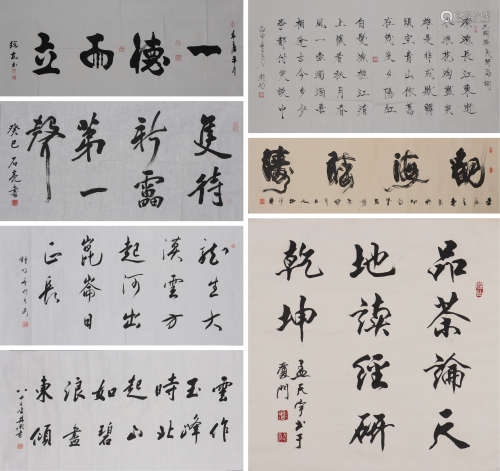 一德而立
隻待
新雷
第一
聲
癸巳 石亮書
龍生大
漠雲方
起河出
崑崙日
正長
雲作
玉峰
時北
起山
如碧
浪盡
東傾
滾滾長江東逝
水浪花淘盡英
雄是非成敗轉
頭空青山依舊
在幾度夕陽紅
白髮漁樵江渚
上慣看秋月春
風一壺濁酒喜
相逢古今多少
事都付笑談中
觀海聽濤
品茶論天
地讀經研
乾坤
孟天宇書于
廈門